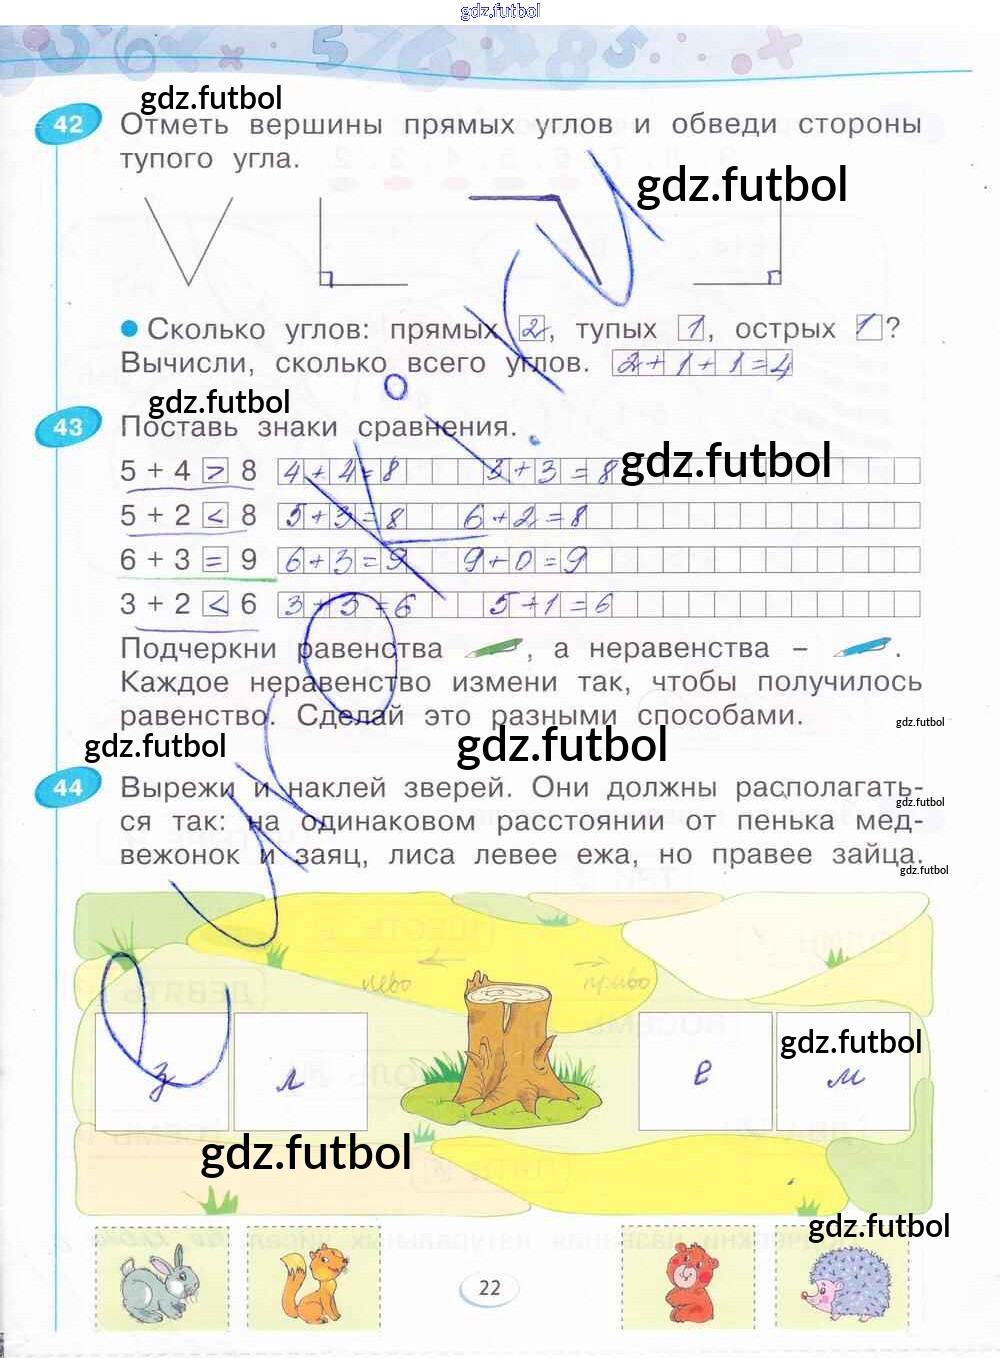 gdz.futbol
gdz.futbol
42 Отметь вершины прямых углов и обведи стороны
тупого угла.
gdz.futbol
Сколько углов: прямых 2, тупых 1, острых 1?
Вычисли, сколько всего углов. 2+1+1=4
gdz.futbol
43 Поставь знаки сравнения.
gdz.futbol
5 + 4 > 8 4+4=8 3+3=8
5 + 2 < 8 5+3=8 6+2=8
6 + 3 = 9 6+3=9 9+0=9
3 + 2 < 6 3+3=6 5+1=6
Подчеркни равенства , а неравенства – .
Каждое неравенство измени так, чтобы получилось
равенство. Сделай это разными способами.
gdz.futbol
gdz.futbol
gdz.futbol
44 Вырежи и наклей зверей. Они должны располагать-
gdz.futbol
ся так: на одинаковом расстоянии от пенька мед-
вежонок и заяц, лиса левее ежа, но правее зайца.
gdz.futbol
urokiru
лево право
gdz.futbol
з л е м
gdz.futbol
gdz.futbol
22